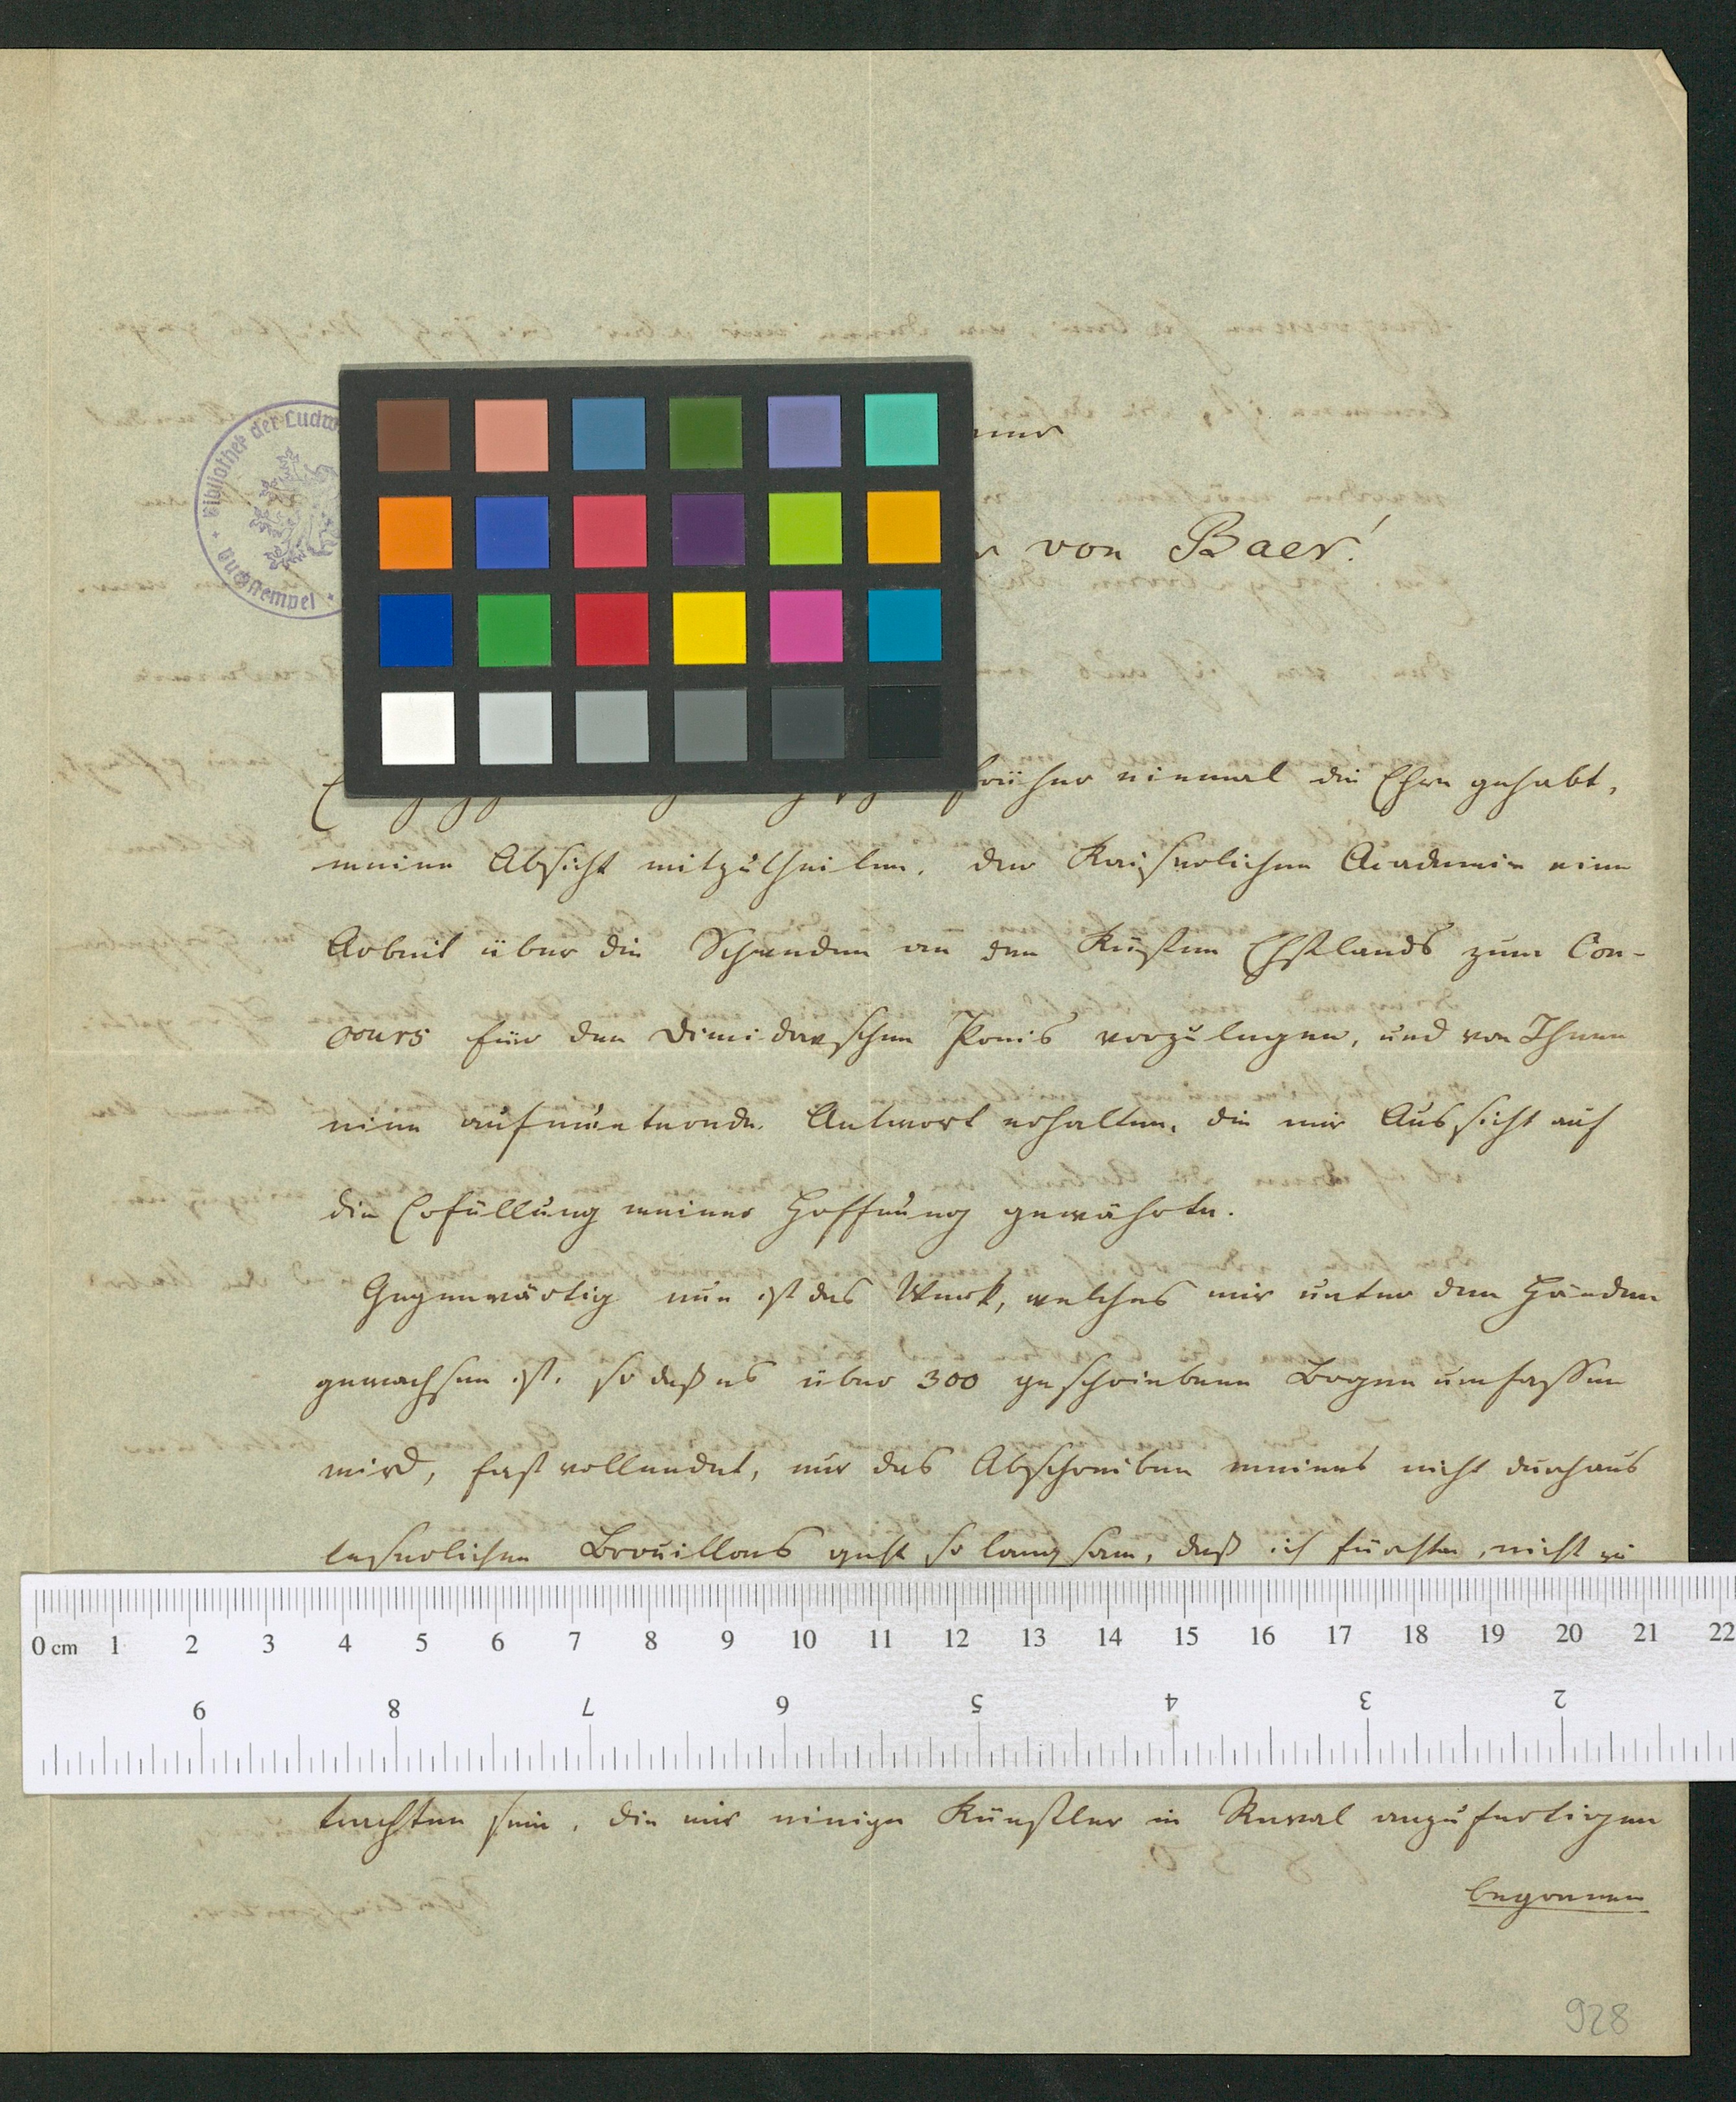 von Baer!
früher einmal die Ehre gehabt,
meine Absicht mitzutheilen, der Kaiserlichen Academie eine
Arbeit über die Schweden an den Küsten Ehstlands zum Con-
cours für den Dimidowschen Preis vorzulegen, und von Ihnen
eine aufmunternde Antwort erhalten, die mir Aussicht auf
die Erfüllung meiner Hoffnung gewährte.
Gegenwärtig nun ist das Werk, welches mir unter den Händen
gewachsen ist, so daß es über 300 geschriebene Bogen umfassen
wird, fast vollendet, nur das Abschreiben meines nicht durchaus
leserlichen Brouillons geht so langsam, daß ich fürchte, nicht zu
0 cm 1 2 3 4 5 6 7 8 9 10 11 12 13 14 15 16 17 18 19 20 21 22
9 8 7 6 5 4 3 2
trachten sein, die mir einige Künstler in Reval anzufertigen
begonnen
928
Bibliothek der Ludw
Buchstempel